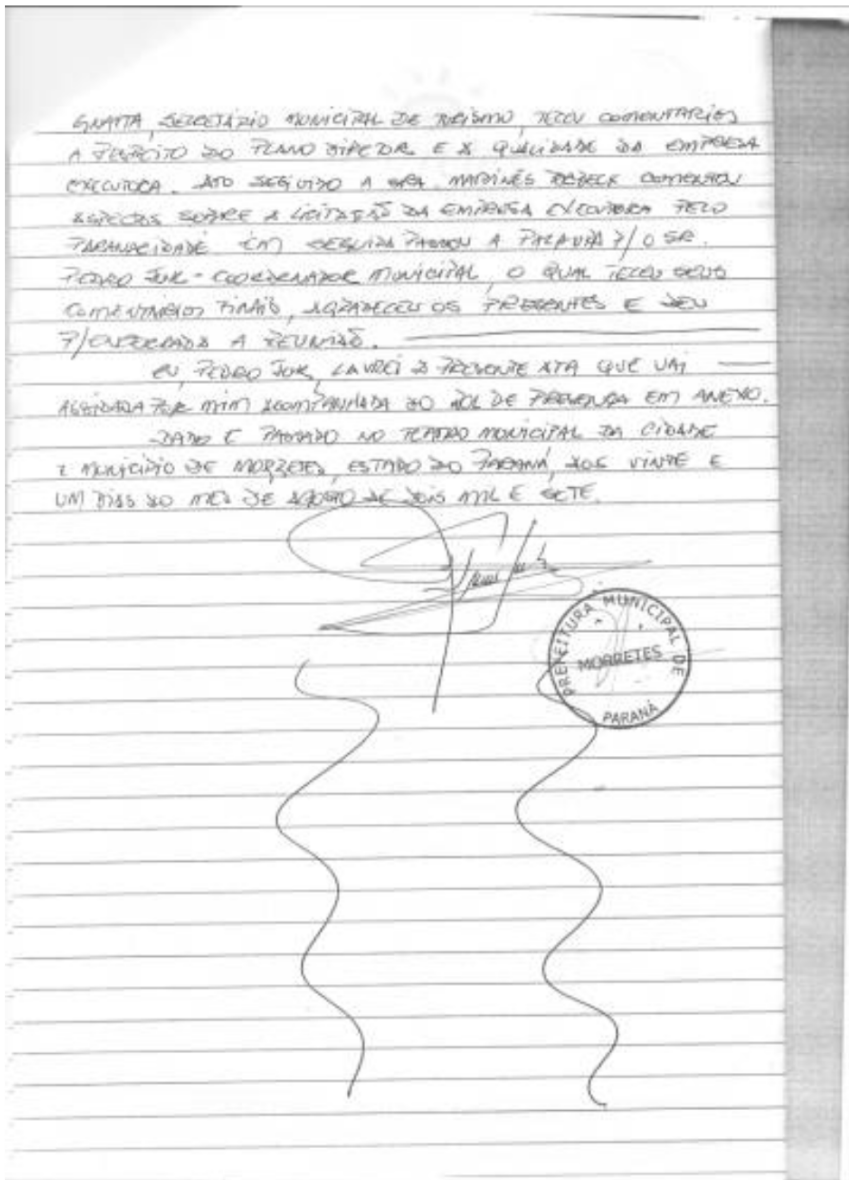 SECRETÁRIO MUNICIPAL DE TURISMO, TECEU COMENTÁRIOS
A RESPEITO DO PLANO DIRETOR E A QUALIDADE DA EMPRESA
EXECUTORA. ATO SEGUIDO A SRA. MARINÊS COMENTOU
ASPECTOS SOBRE A LICITAÇÃO DA EMPRESA EXECUTORA PELO
PARANACIDADE EM SEGUIDA PASSOU A PALAVRA P/ O SR.
PEDRO JUK - COORDENADOR MUNICIPAL, O QUAL TECEU SEUS
COMENTÁRIOS FINAIS, AGRADECEU OS PRESENTES E DEU
P/ ENCERRADA A REUNIÃO.
EU, PEDRO JUK, LAVREI A PRESENTE ATA QUE VAI
ASSINADA POR MIM ACOMPANHADA DO ROL DE PRESENÇA EM ANEXO.
DADO E PASSADO NO TEATRO MUNICIPAL DA CIDADE
E MUNICÍPIO DE MORRETES, ESTADO DO PARANÁ, AOS VINTE E
UM DIAS DO MÊS DE AGOSTO DE DOIS MIL E SETE.
PREFEITURA MUNICIPAL DE
MORRETES
PARANÁ